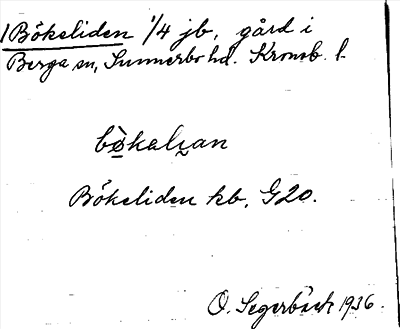 1 Bökeliden 1/4 jb, gård i
Berga sn, Sunnerbo hd. Kronob. l.
bø̀kalɩan
Bökeliden kb, G20.
O. Segerbäck 1936.